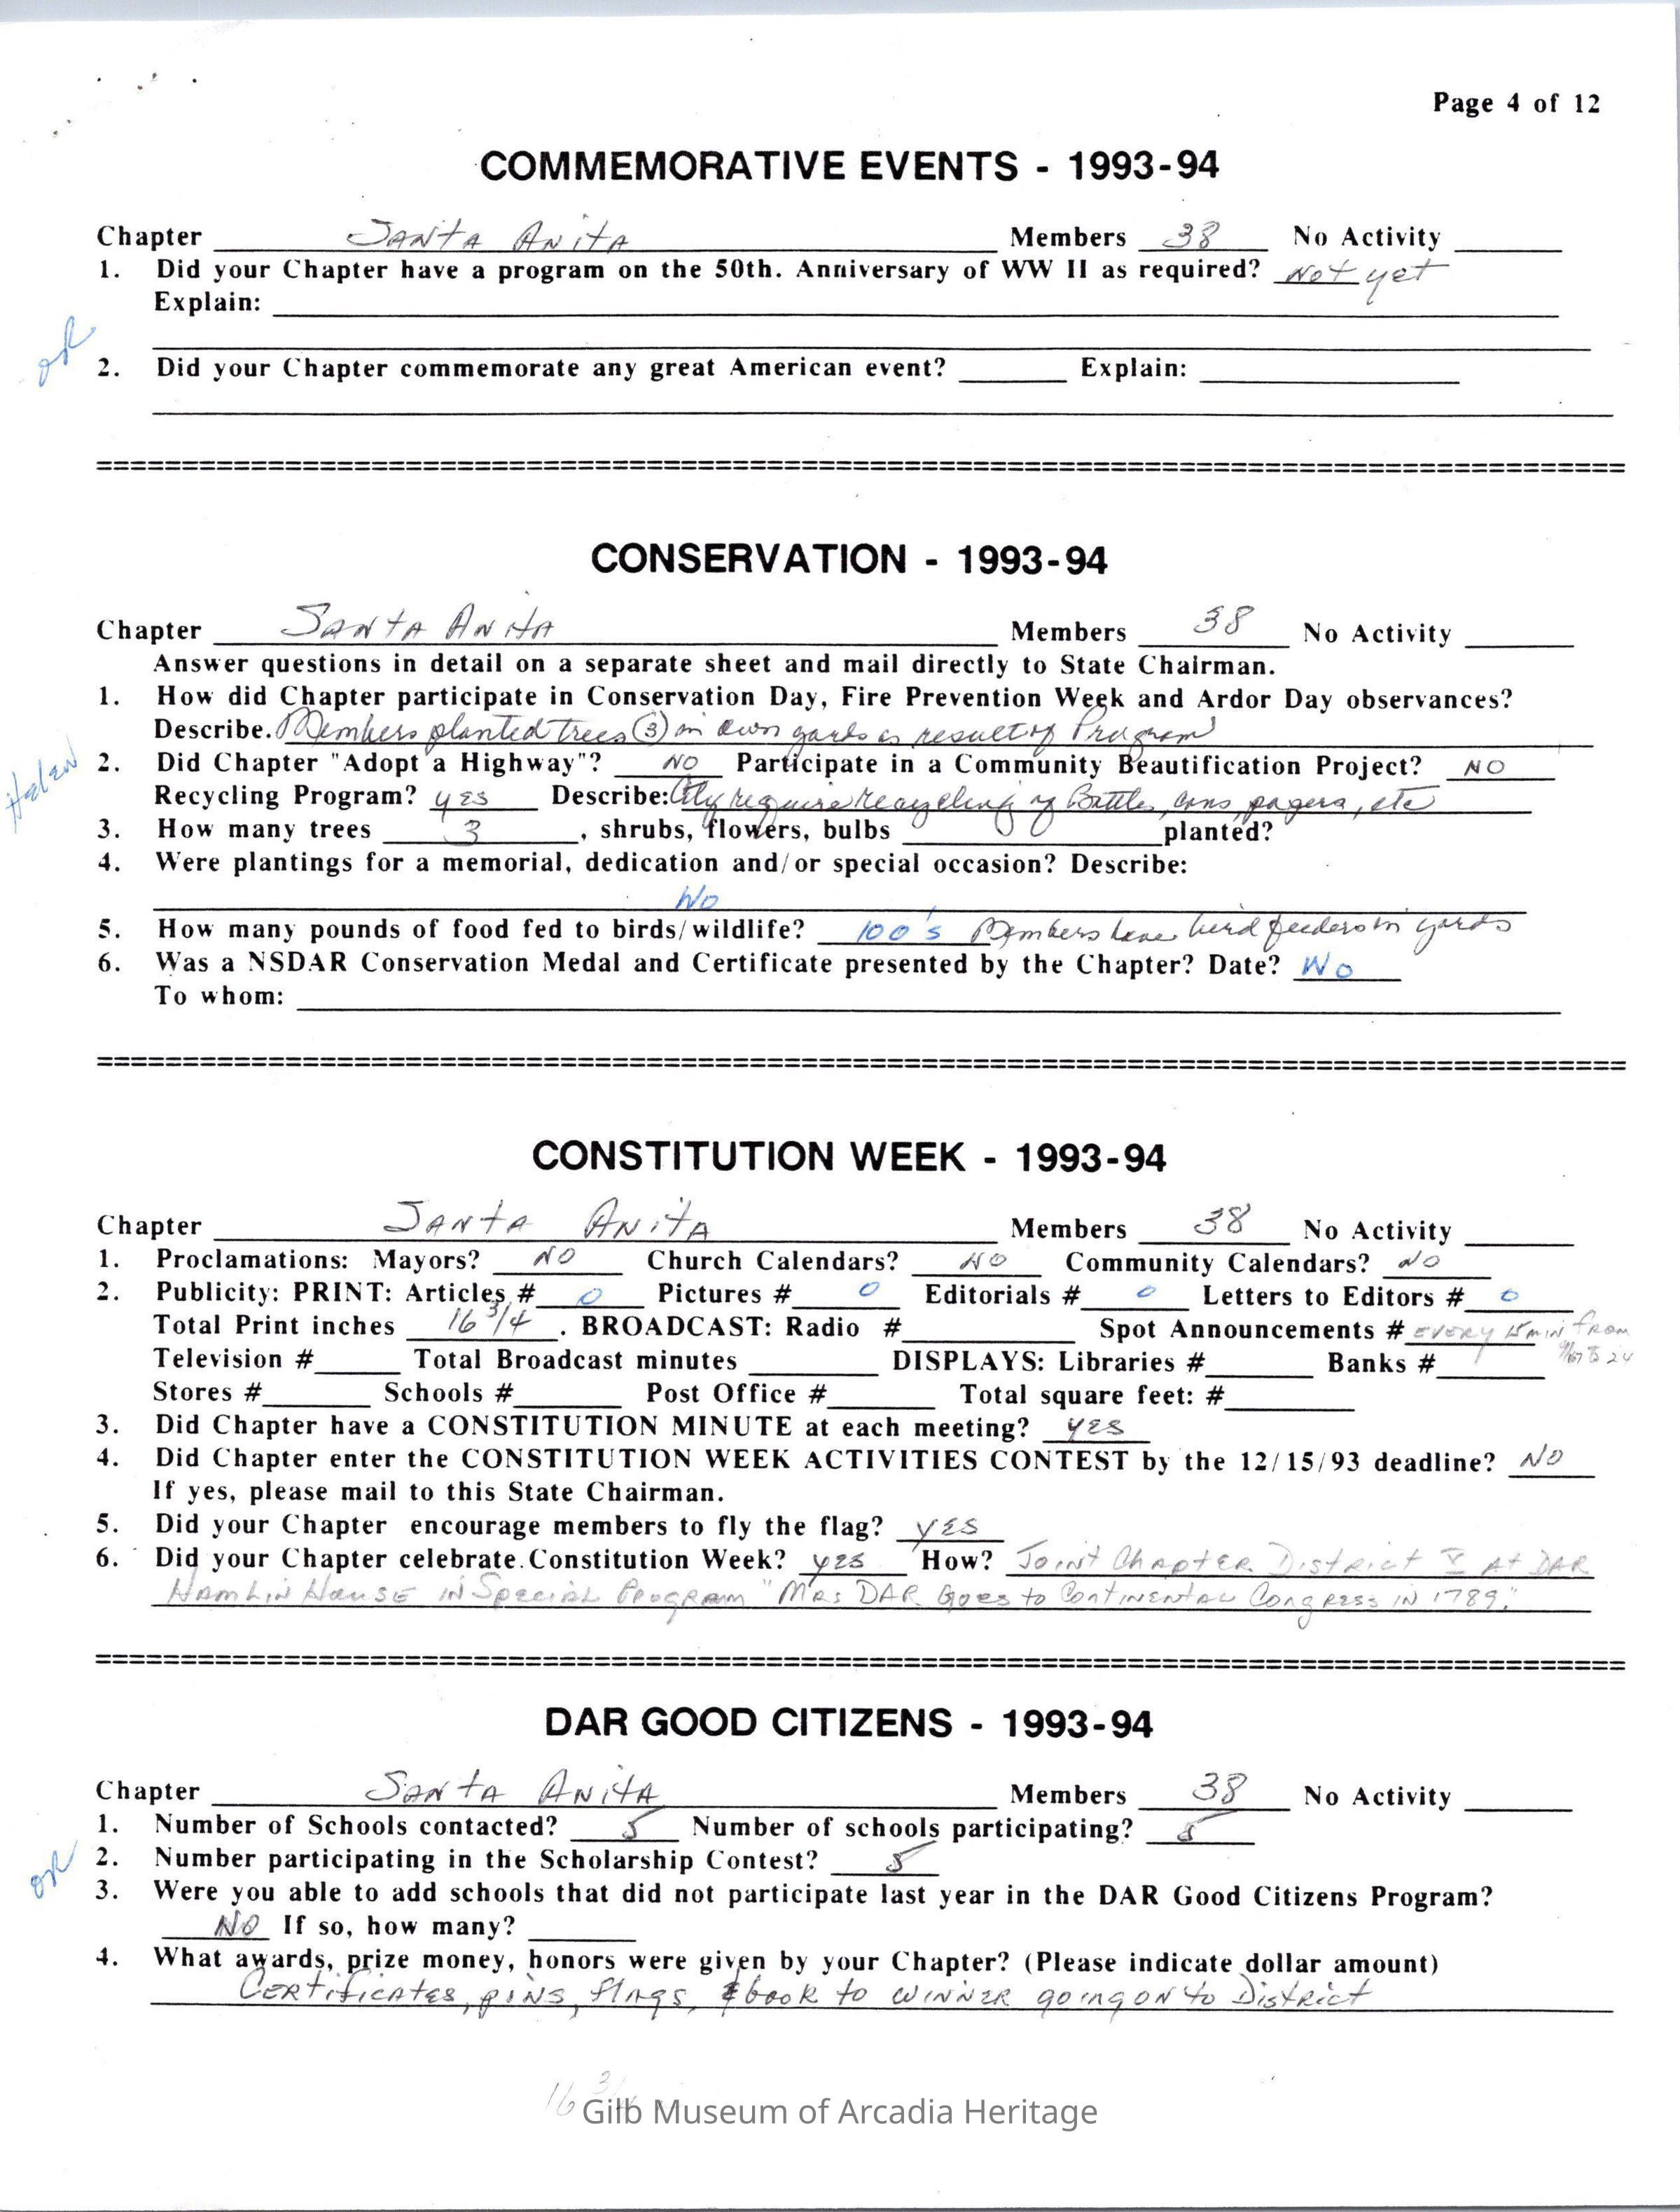 Page 4 of 12
COMMEMORATIVE EVENTS - 1993-94
Chapter Santa Anita Members 38 No Activity
1. Did your Chapter have a program on the 50th. Anniversary of WW II as required? Not yet
Explain:
OK
2. Did your Chapter commemorate any great American event? Explain:
CONSERVATION - 1993-94
Chapter Santa Anita Members 38 No Activity
Answer questions in detail on a separate sheet and mail directly to State Chairman.
1. How did Chapter participate in Conservation Day, Fire Prevention Week and Ardor Day observances?
Describe. Members planted trees (3) in own yards as result of Program
Helen
2. Did Chapter "Adopt a Highway"? NO Participate in a Community Beautification Project? NO
Recycling Program? yes Describe: City require recycling of Bottles, cans, papers, etc
3. How many trees 3 , shrubs, flowers, bulbs 0 0 planted?
4. Were plantings for a memorial, dedication and/or special occasion? Describe:
No
5. How many pounds of food fed to birds/wildlife? 100's Members have bird feeders in yards
6. Was a NSDAR Conservation Medal and Certificate presented by the Chapter? Date? No
To whom:
CONSTITUTION WEEK - 1993-94
Chapter Santa Anita Members 38 No Activity
1. Proclamations: Mayors? NO Church Calendars? NO Community Calendars? NO
2. Publicity: PRINT: Articles # 0 Pictures # 0 Editorials # 0 Letters to Editors # 0
Total Print inches 16 3/4 . BROADCAST: Radio # Spot Announcements # EVERY 15 MIN from
Television # Total Broadcast minutes DISPLAYS: Libraries # Banks # to 24
Stores # Schools # Post Office # Total square feet: #
3. Did Chapter have a CONSTITUTION MINUTE at each meeting? YES
4. Did Chapter enter the CONSTITUTION WEEK ACTIVITIES CONTEST by the 12/15/93 deadline? NO
If yes, please mail to this State Chairman.
5. Did your Chapter encourage members to fly the flag? YES
6. Did your Chapter celebrate Constitution Week? yes How? Joint Chapter District V At DAR
Hamlin House in Special Program "Mrs DAR Goes to Continental Congress in 1789."
DAR GOOD CITIZENS - 1993-94
Chapter Santa Anita Members 38 No Activity
1. Number of Schools contacted? 5 Number of schools participating? 5
OK
2. Number participating in the Scholarship Contest? 5
3. Were you able to add schools that did not participate last year in the DAR Good Citizens Program?
NO If so, how many?
4. What awards, prize money, honors were given by your Chapter? (Please indicate dollar amount)
Certificates, pins, flags, & book to winner going on to District
16 3/4
Gilb Museum of Arcadia Heritage